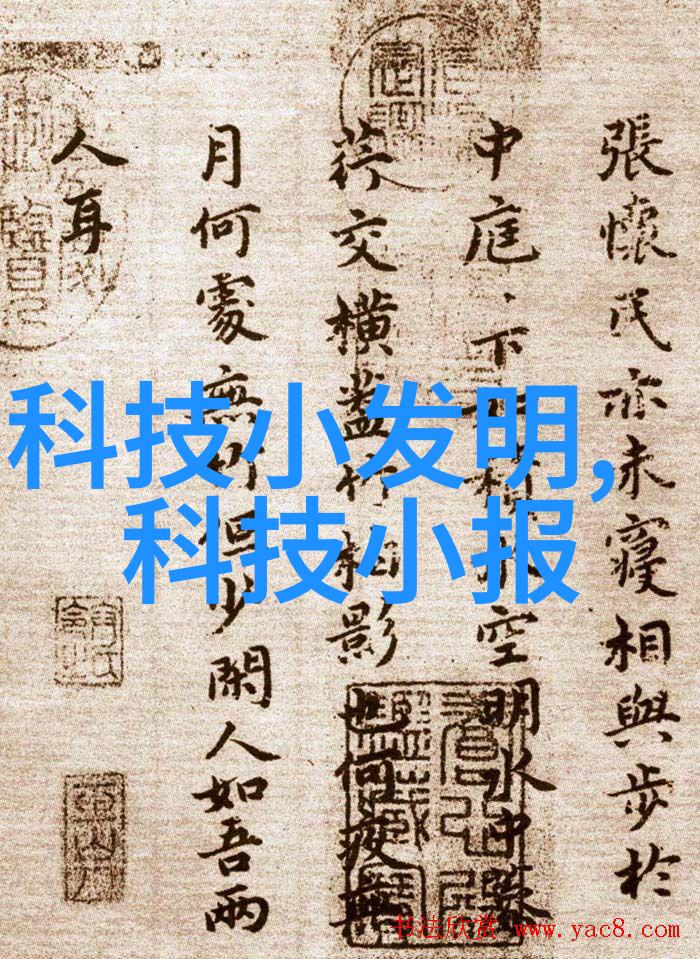 張懷民亦未寢相與步於
中庭、下如積水空明水中藻
荇交橫蓋竹相影也何夜無
月何處無竹但少閑人如吾兩
人耳
科技小发明,
科技小报
书法欣赏 www.yac8.com